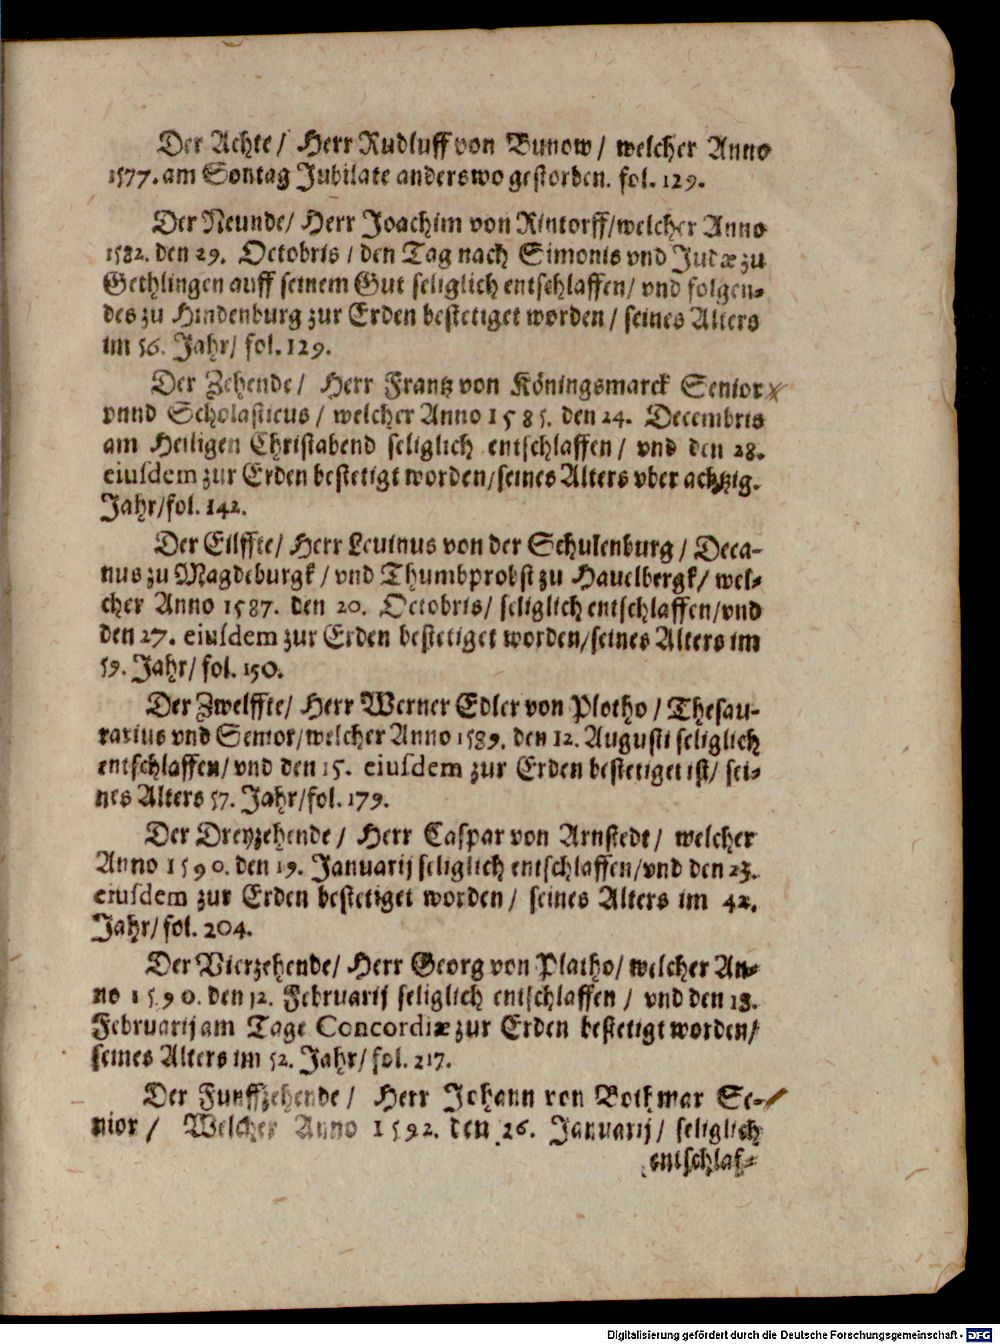 Der Achte / Herr Rudluff von Bunow / welcher Anno
1577. am Sontag Jubilate anderswo gestorden. fol. 129.
Der Neunde / Herr Joachim von Rintorff / welcher Anno
1582. den 29. Octobris / den Tag nach Simonis vnd Judæ zu
Gethlingen auff seinem Gut seliglich entschlaffen / vnd folgen-
des zu Hindenburg zur Erden bestetiget worden / seines Alters
im 56. Jahr / fol. 129.
Der Zehende / Herr Frantz von Köningsmarck Senior
vnnd Scholasticus / welcher Anno 1585. den 24. Decembris
am Heiligen Christabend seliglich entschlaffen / vnd den 28.
eiusdem zur Erden bestetigt worden / seines Alters vber achtzig.
Jahr / fol. 142.
Der Eilffte / Herr Leuinus von der Schulenburg / Deca-
nus zu Magdeburgk / vnd Thumbprobst zu Hauelbergk / wel-
cher Anno 1587. den 20. Octobris / seliglich entschlaffen / vnd
den 27. eiusdem zur Erden bestetiget worden / seines Alters im
59. Jahr / fol. 150.
Der Zwelffte / Herr Werner Edler von Plotho / Thesau-
rarius vnd Senior / welcher Anno 1589. den 12. Augusti seliglich
entschlaffen / vnd den 15. eiusdem zur Erden bestetiget ist / sei-
nes Alters 57. Jahr / fol. 179.
Der Dreyzehende / Herr Caspar von Arnstedt / welcher
Anno 1590. den 19. Januarij seliglich entschlaffen / vnd den 23.
eiusdem zur Erden bestetiget worden / seines Alters im 42.
Jahr / fol. 204.
Der Vierzehende / Herr Georg von Platho / welcher An-
no 1590. den 12. Februarij seliglich entschlaffen / vnd den 18.
Februarij am Tage Concordiæ zur Erden bestetigt worden /
seines Alters im 52. Jahr / fol. 217.
Der Funffzehende / Herr Johann von Bothmar Se-
nior / Welcher Anno 1592. den 26. Januarij / seliglich
entschlaf-
Digitalisierung gefördert durch die Deutsche Forschungsgemeinschaft - DFG